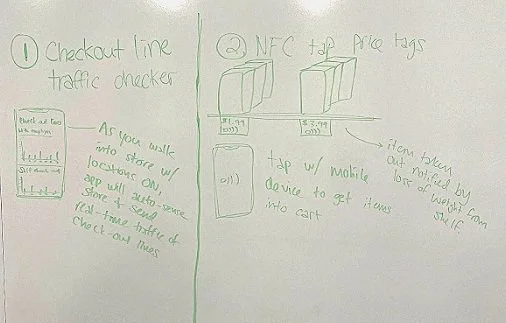 ① Checkout line
traffic checker
As you walk
into store w/
locations ON,
app will auto-sense
store & send
real-time traffic of
check-out lines
② NFC tap price tags
$1.99
$3.99
item taken
out notified by
loss of weight from
shelf.
tap w/ mobile
device to get items
into cart